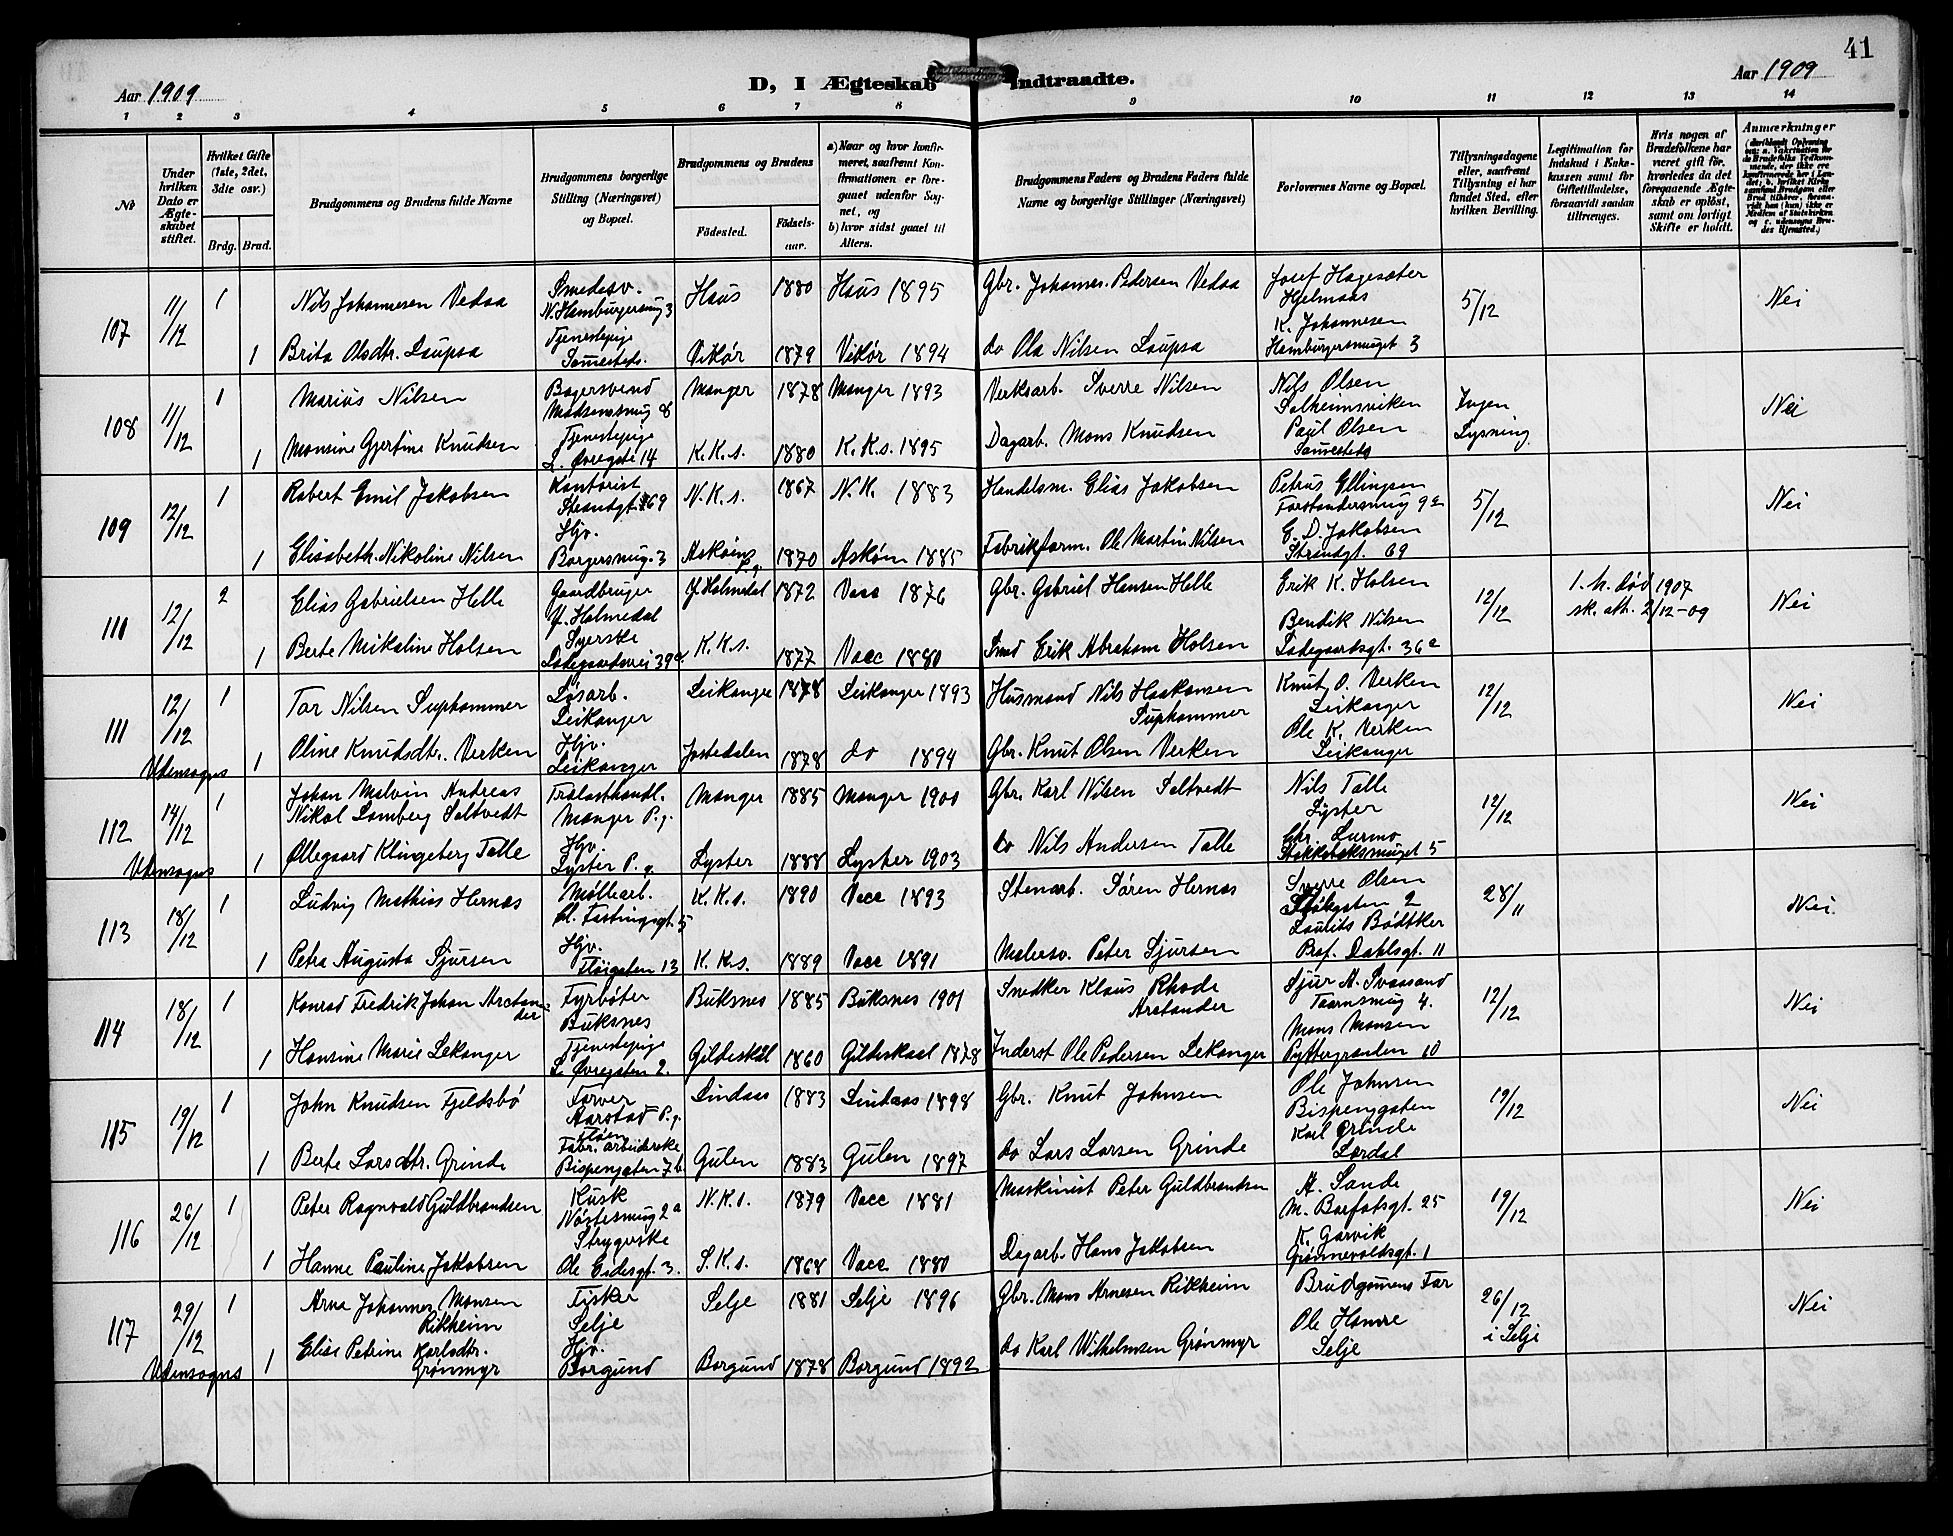 41
Aar 1909
D, I Ægteskab Indtraadte.
Aar 1909
1 2 3 4 5 6 7 8 9 10 11 12 13 14
No
Under hvilken Dato er Ægteskabet stiftet.
Hvilket Gifte (1ste, 2det, 3die osv.)
Brdg. Brud.
Brudgommens og Brudens fulde Navne
Brudgommens borgerlige Stilling (Næringsvei) og Bopæl.
Brudgommens og Brudens
Fødested.
Fødselsaar.
a) Naar og hvor konfirmeret, saafremt Konfirmationen er foregaaet udenfor Sognet, og
b) hvor sidst gaaet til Alters.
Brudgommens Faders og Brudens Faders fulde Navne og borgerlige Stillinger (Næringsvei)
Forlovernes Navne og Bopæl.
Tillysningsdagene eller, saafremt Tillysning ei har fundet Sted, efter hvilken Bevilling.
Legitimation for Indskud i Enkekassen samt for Giftetilladelse, forsaavidt saadan tiltrænges.
Hvis nogen af Brudefolkene har været gift før, hvorledes da det foregaaende Ægteskab er opløst, samt om lovligt Skifte er holdt.
Anmærkninger
107 11/12 1 Nils Johannesen Vedaa Smedesv. N. Hamburgersmug 3 Haus 1880 Haus 1895 Gbr. Johannes Pedersen Vedaa Josef Hagesæter Hjelmaas 5/12 Nei
1 Brita Olsdtr. Laupsa Tjenestepige Sammesteds. Vikør 1879 Vikør 1894 do Ola Nilsen Laupsa K. Johannesen Hamburgersmuget 3
108 11/12 1 Marius Nilsen Bagersvend Madsensmug 8 Manger 1878 Manger 1893 Verksarb. Sverre Nilsen Nils Olsen Solheimsviken Ingen Lysning Nei
1 Monsine Gjertine Knudsen Tjenestepige L. Øvregate 14 K. K. s. 1880 K. K. s. 1895 Dagarb. Mons Knudsen Paul Olsen Sammesteds
109 12/12 1 Robert Emil Jakobsen Kontorist Strandgt. 69 N. K. s. 1867 N. K. 1883 Handelsm. Elias Jakobsen Petrus Ellingsen Forstandersmug 9a 5/12 Nei
1 Elisabeth Nikoline Nilsen Hjv. Borgersmug. 3 Askøens Pg. 1870 Askøen 1885 Fabrikform. Ole Martin Nilsen E. D. Jakobsen Strandgt. 69
110 12/12 2 Elias Gabrielsen Helle Gaardbruger Y. Holmedal Y. Holmedal 1872 Vacc 1876 Gbr. Gabriel Hansen Helle Erik K. Holsen 12/12 1. h. død 1907 sk. att. 2/12-09 Nei
1 Berte Mikaline Holsen Syerske Ladegaardsvei 39a K. K. s. 1877 Vacc 1880 Smed Erik Abraham Holsen Bendik Nilsen Ladegaardsgt. 36a
111 12/12 1 Tor Nilsen Suphammer Løsarb. Leikanger Leikanger 1878 Leikanger 1893 Husmand Nils Haakonsen Suphammer Knut O. Verken Leikanger 12/12 Nei
Udensogns 1 Oline Knudsdtr. Verken Hjv. Leikanger Jostedalen 1878 do 1894 Gbr. Knut Olsen Verken Ole K. Verken Leikanger
112 14/12 1 Johan Malvin Andreas Nikol Lamberg Saltvedt Trælasthandl. Manger P.g. Manger 1885 Manger 1900 Gbr. Karl Nilsen Saltvedt Nils Talle Lyster 12/12 Nei
Udensogns 1 Øllegaard Klingeberg Talle Hjv. Lyster P. g. Lyster 1888 Lyster 1903 do Nils Andersen Talle Chr. Lurmo Støkkebæksmuget 5
113 18/12 1 Ludvig Mathias Hernæs Møllearb. Kl. Fastingsgt. 5 K. K. s. 1890 Vacc 1893 Stenarb. Søren Hernæs Sverre Olsen 2 28/11 Nei.
1 Petra Augusta Sjursen Hjv. Fløigaten 13 K. K. s. 1889 Vacc 1891 Malersv. Peter Sjursen Laurits Bødtker Prof. Dahlsgt. 11
114 18/12 1 Konrad Fredrik Johan Arctander Fyrbøter Buksnes Buksnes 1885 Buksnes 1901 Snedker Klaus Rhode Arctander Sjur A. Svaasand Taarnsmug 4. 12/12 Nei
1 Hansine Marie Lekanger Tjenestepige L. Øvregaten 2. Gildeskål 1860 Gildeskaal 1878 Inderst Ole Pedersen Lekanger Mons Monsen Pyttergraaden 10
115 19/12 1 John Knudsen Fjeldsbø Farver Aarstad P. g. Lindaas 1883 Lindaas 1898 Gbr. Knut Johnsen Ole Johnsen Bispengaten 19/12 Nei
1 Berte Larsdtr. Grinde Fabr. arbeiderske Bispengaten 7b Gulen 1883 Gulen 1897 do Lars Larsen Grinde Karl Grinde Lærdal
116 26/12 1 Peter Ragnvald Guldbrandsen Kusk Nøstesmug 2a N. K. s. 1879 Vacc 1881 Maskinist Peter Guldbrandsen A. Sande M. Barfotsgt. 25 19/12 Nei
1 Hanne Pauline Jakobsen Strygerske Ole Eidesgt. 3. S. K. s. 1868 Vacc 1880 Dagarb. Hans Jakobsen K. Garvik Grønnevoldsgt. 1
117 29/12 1 Arne Johannes Monsen Rikheim Fisker Selje Selje 1881 Selje 1896 Gbr. Mons Arnesen Rikheim Brudgomens Far 26/12 i Selje Nei
Udensogns 1 Elise Petrine Karlsdtr. Grønmyr Hjv. Borgund Borgund 1878 Borgund 1892 do Karl Wilhelmsen Grønmyr Ole Hamre Selje